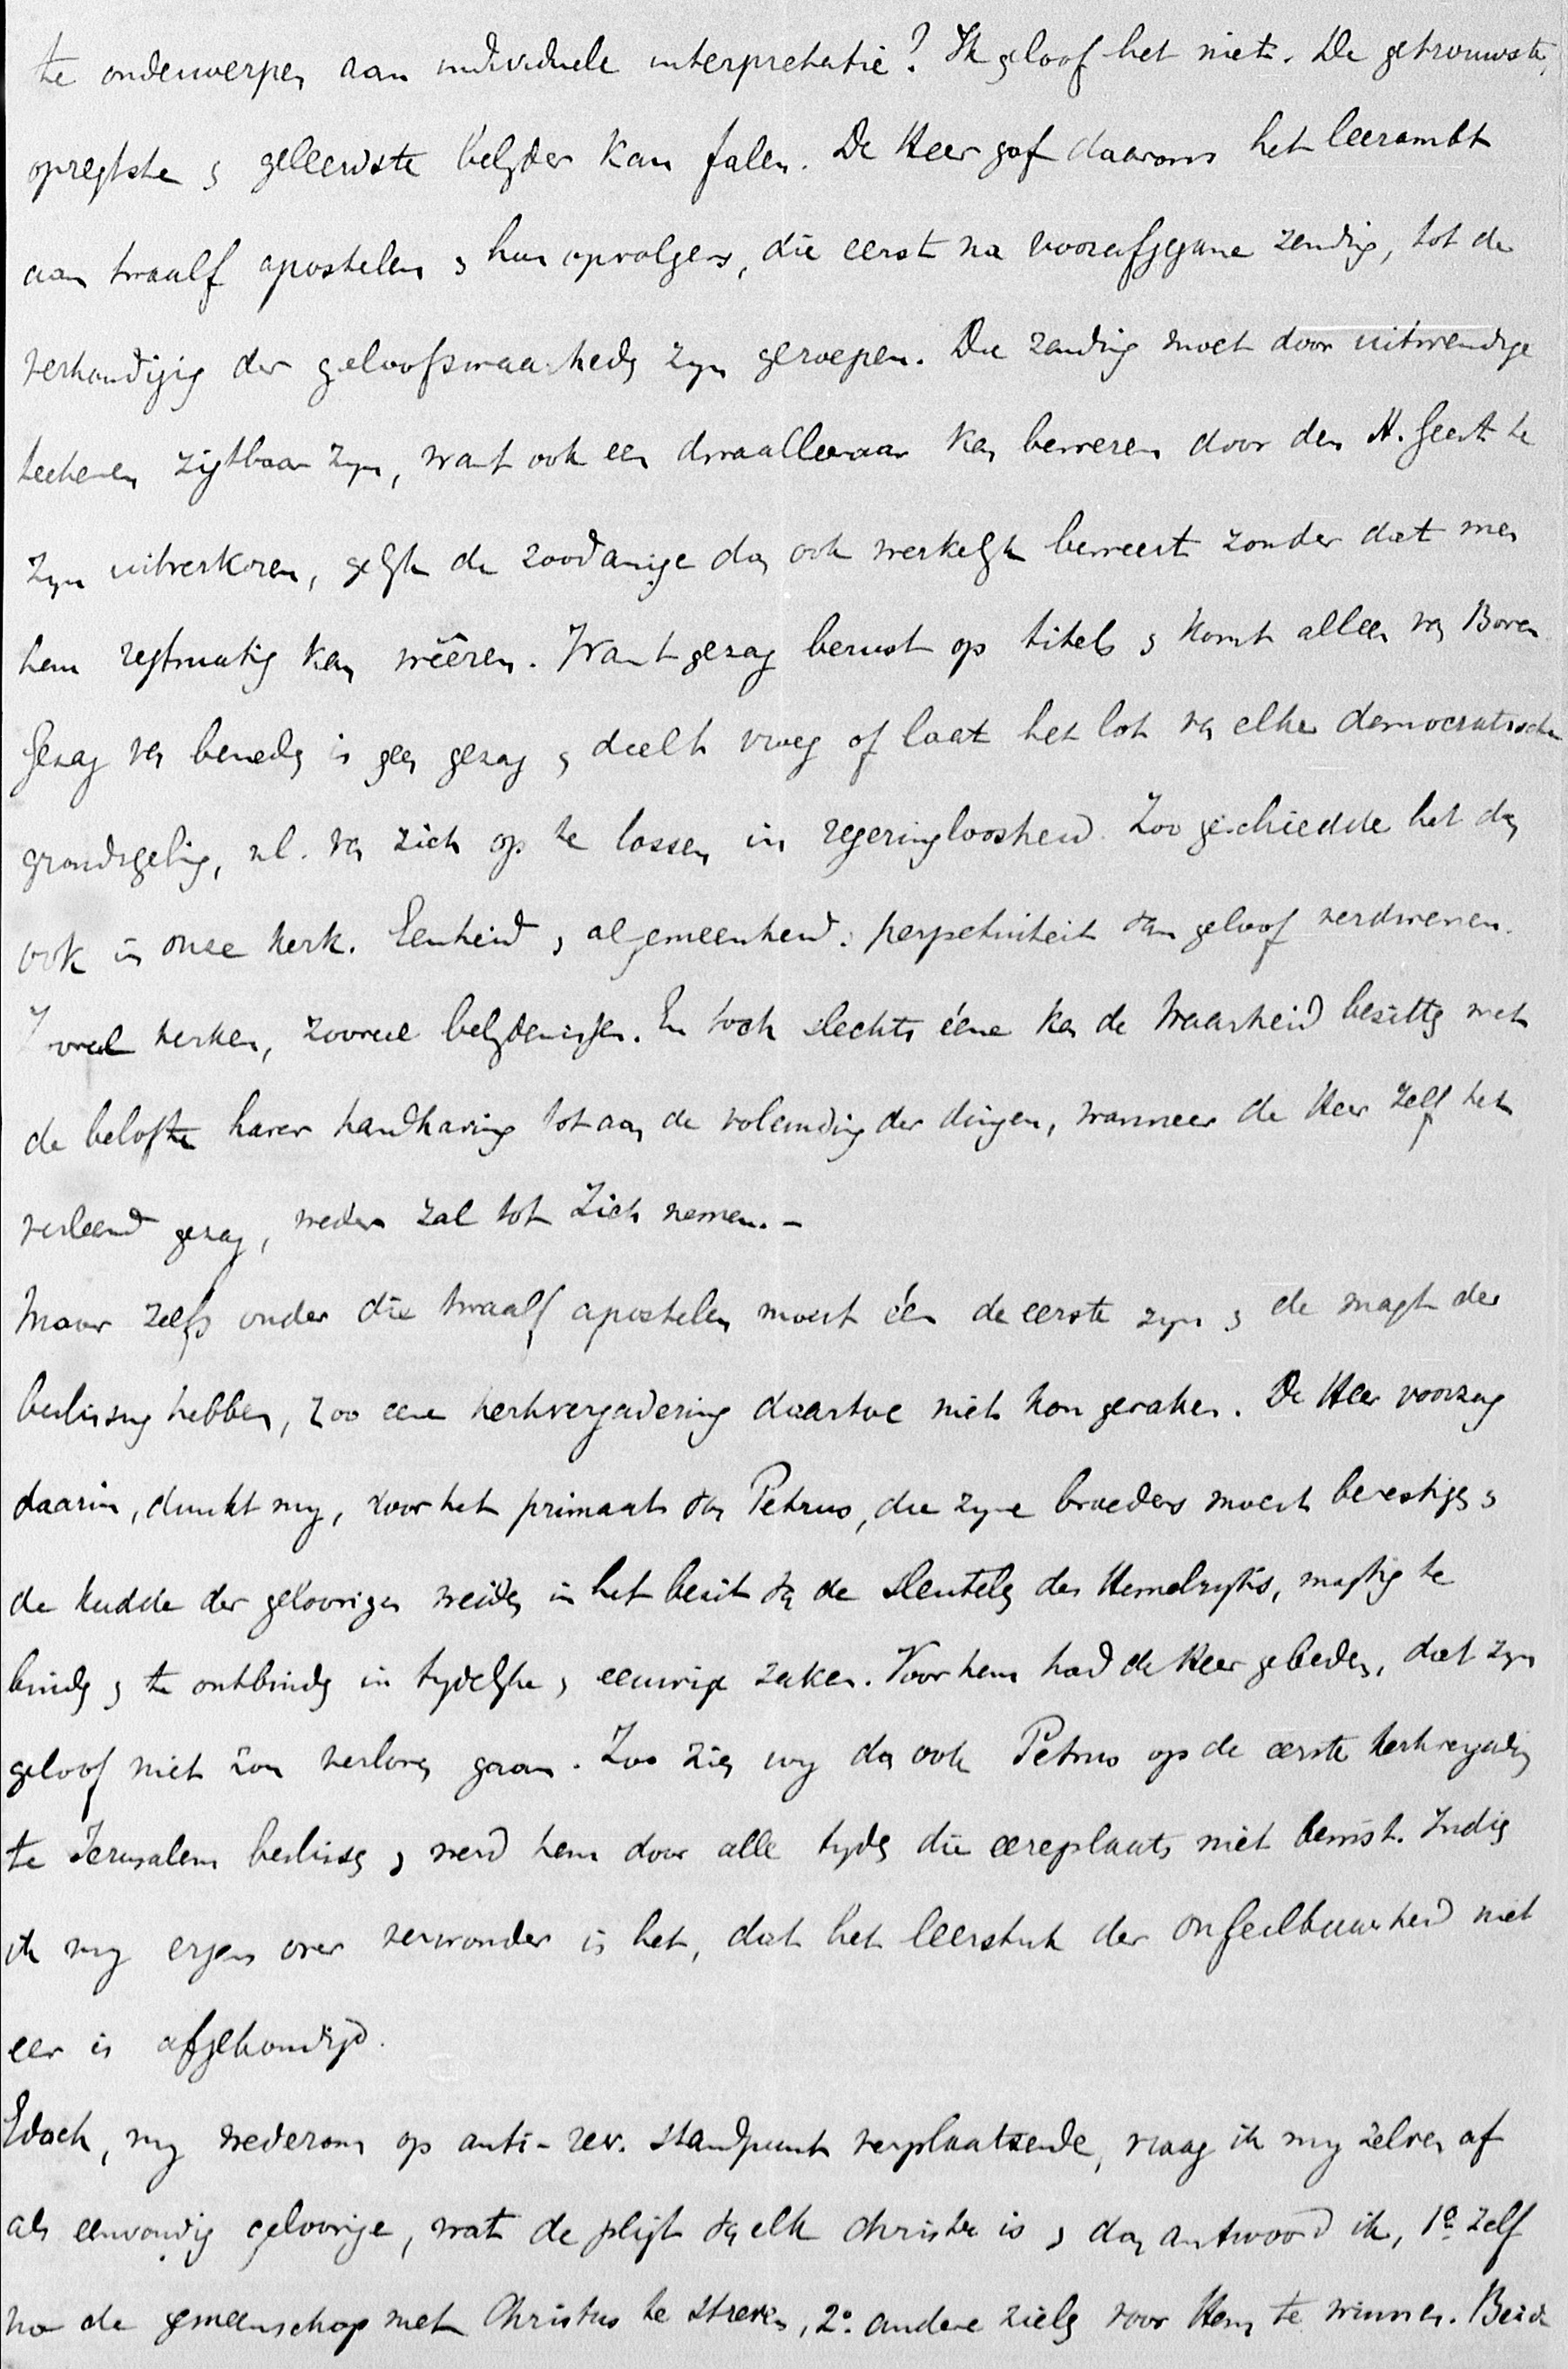 te onderwerpen aan individuele interpretatie? Ik geloof het niet. De getrouwste,
opregtste & geleerdste belyder kan falen. De Heer gaf daarom het leerambt
aan twaalf apostelen & hun opvolgers, die eerst na voorafgegane zending, tot de
verkondiging der geloofswaarheden zyn geroepen. Die zending moet door uitwendige
teekenen zigtbaar zyn, want ook een dwaalleeraar kan beweren door den H. Geest te
zyn uitverkoren, gelyk de zoodanige dan ook werkelyk beweert zonder dat men
hem regtmatig kan wêeren. Want gezag berust op titels & komt alleen van Boven
Gezag van beneden is geen gezag & deelt vroeg of laat het lot van elke democratische
grondregeling, nl. van zich op te lossen in regeringloosheid. Zoo geschiedde het dan
ook in onze kerk. Eenheid, algemeenheid, perpetuiteit van geloof verdwenen.
Zooveel kerken, zooveel belydenissen. En toch slechts ééne kan de Waarheid bezitten met
de belofte harer handhaving tot aan de voleinding der dingen, wanneer de Heer Zelf het
verleend gezag, weder zal tot Zich nemen. -
Maar zelfs onder die twaalf apostelen moest één de eerste zyn & de magt der
beslissing hebben, zoo eene kerkvergadering daartoe niet kon geraken. De Heer voorzag
daarin, dunkt my, door het primaat van Petrus, die zyne broeders moest bevestigen &
de kudde der geloovigen weiden in het bezit van de sleutels des Hemelryks, magtig te
binden & te ontbinden in tydelyke & eeuwige zaken. Voor hem had de Heer gebeden, dat zyn
geloof niet zou verloren gaan. Zoo zien wy dan ook Petrus op de eerste kerkvergadering
te Jerusalem beslissen & werd hem door alle tyden die eereplaats niet betwist. Indien
ik my ergens over verwonder is het, dat het leerstuk der onfeilbaarheid niet
eer is afgekondigd.
Edoch, my wederom op anti-rev. standpunt verplaatsende, vraag ik my zelven af
als eenvoudig geloovige, wat de pligt van elk christen is & dan antwoord ik, 1º zelf
na de gemeenschap met Christus te streven, 2º andere zielen voor Hem te winnen. Beide